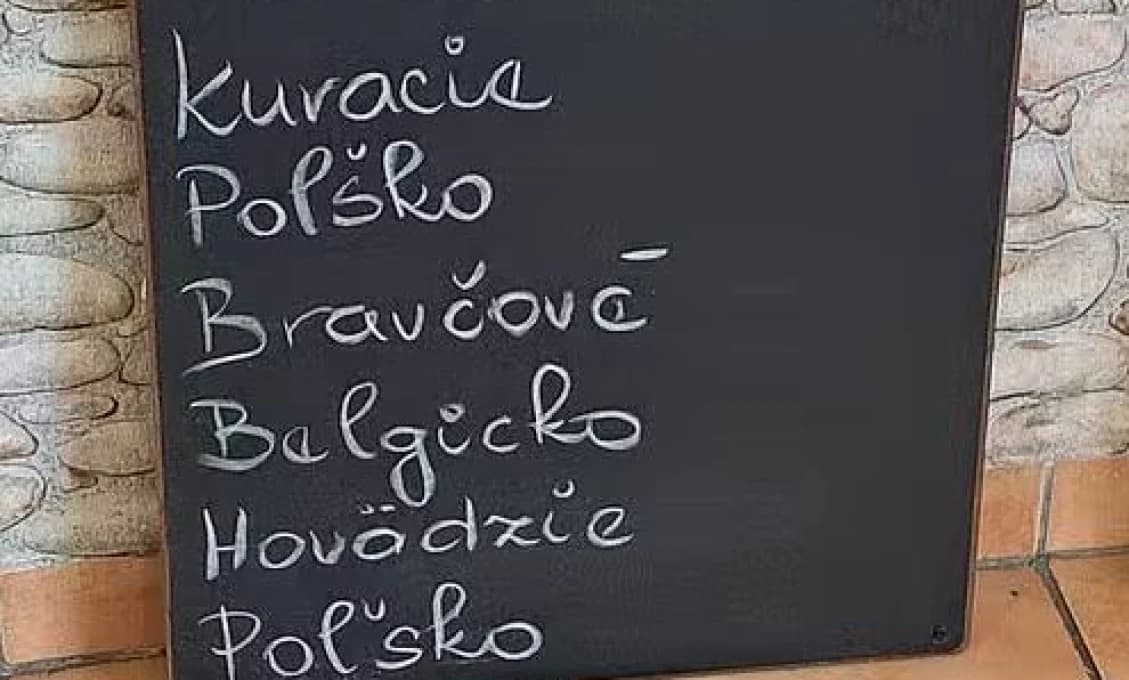 Kuracie
Polško
Bravčové
Belgicko
Hovädzie
Poľsko